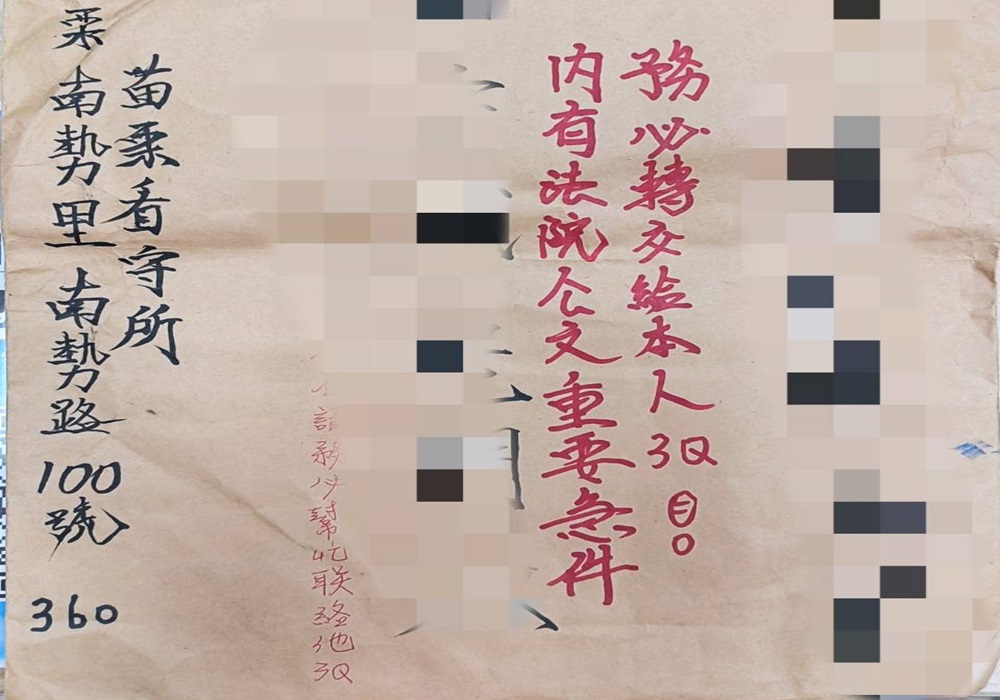 務必轉交給本人3Q
內有法院公文重要急件
請務必幫忙联絡他3Q
苗栗看守所
栗南勢里南勢路100號
360